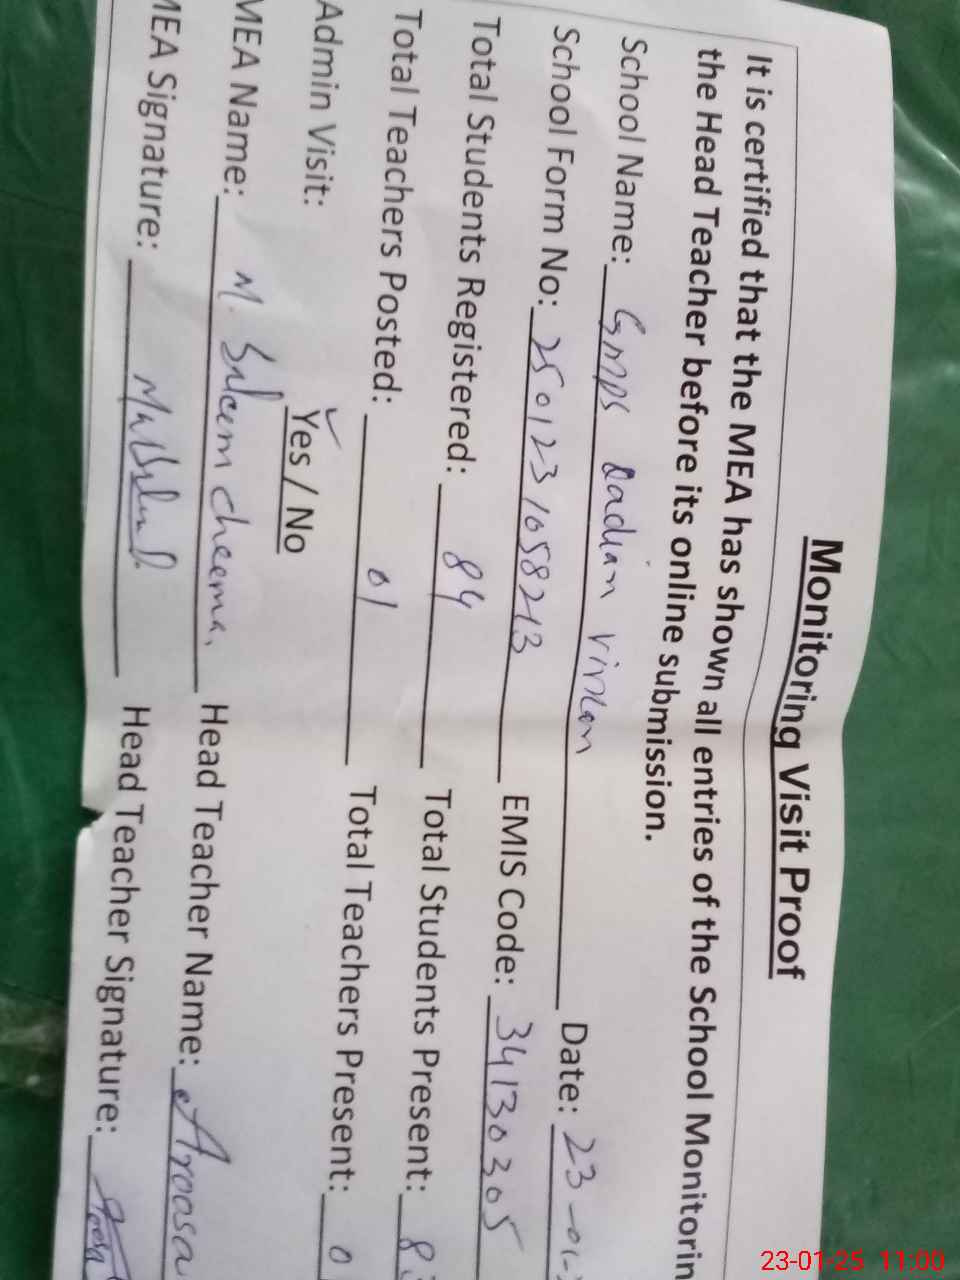 Monitoring Visit Proof
It is certified that the MEA has shown all entries of the School Monitorin
the Head Teacher before its online submission.
School Name: GMPS Dadian Virkan Date: 23-01-
School Form No: 2501231058213 EMIS Code: 34130305
Total Students Registered: 84 Total Students Present: 8
Total Teachers Posted: 01 Total Teachers Present: 0
Admin Visit: Yes / No
MEA Name: M. Saleem cheema. Head Teacher Name: Aroosa
MEA Signature: Head Teacher Signature:
23-01-25 11:00